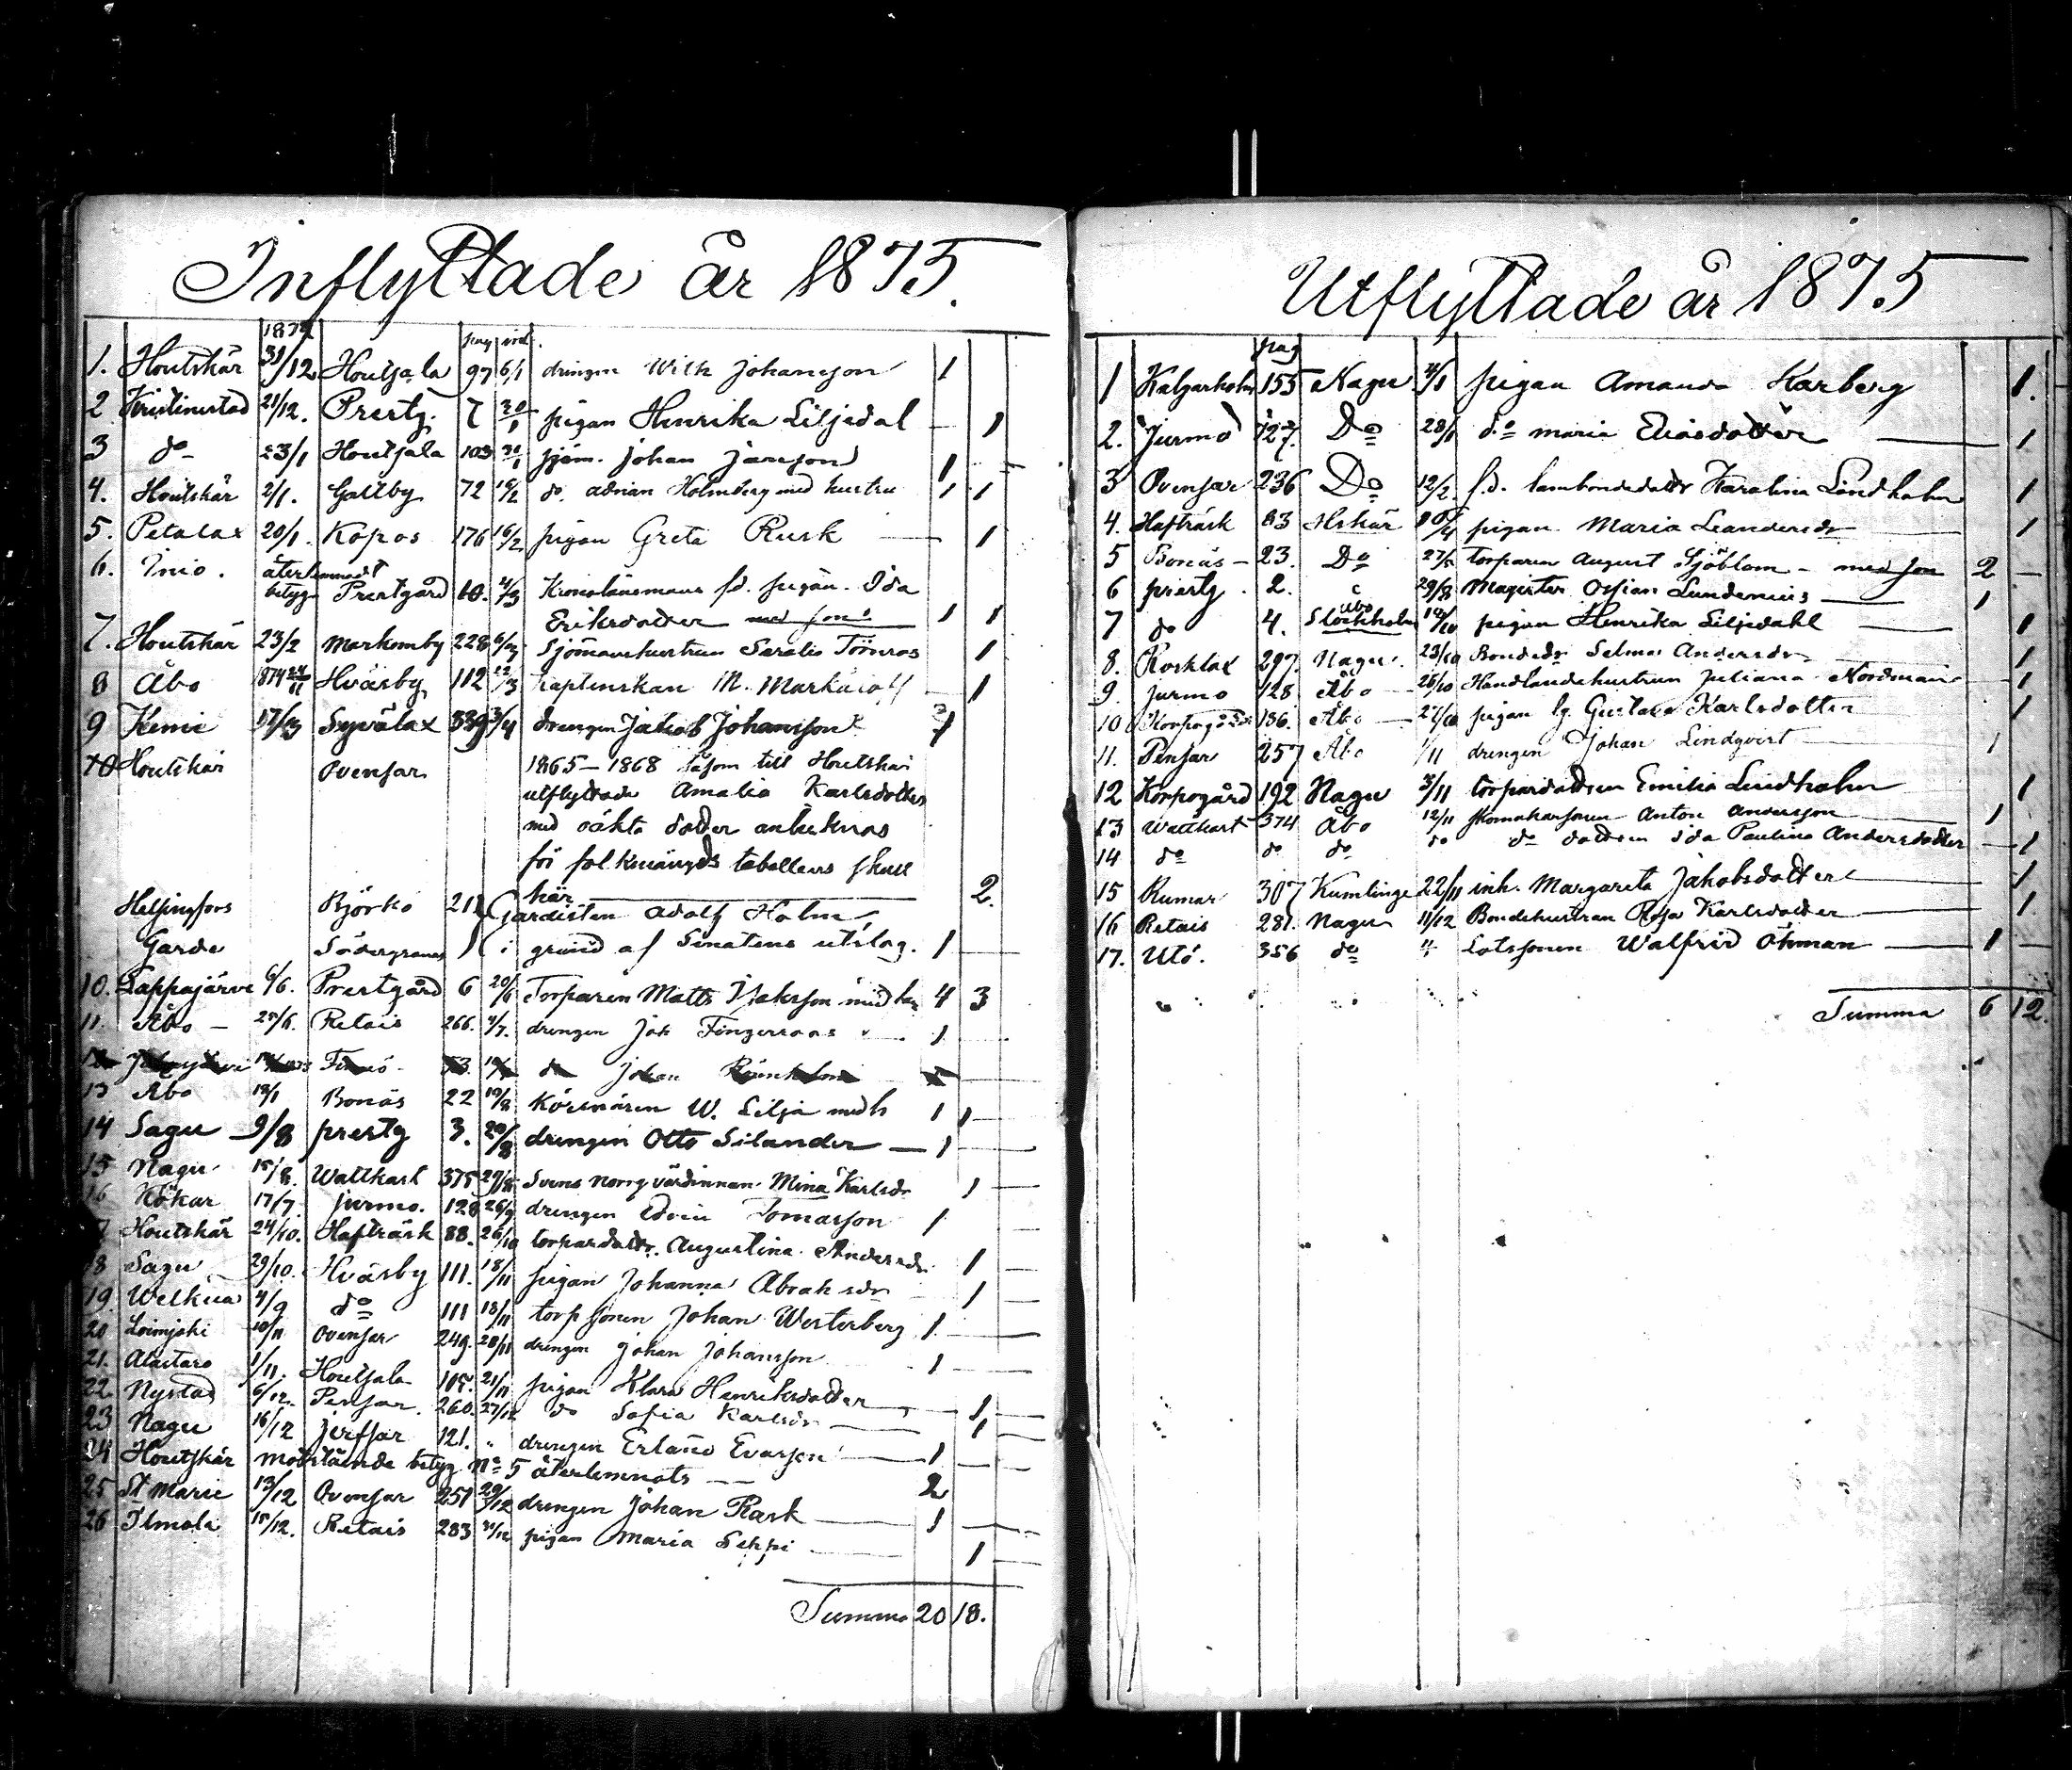 Inflyttade år 1875.
1874 pag
1. Houtskär 31/12 Houtsala 97 6/1 drengen Wilh Johansson 1
2 Kristinestad 21/12. Prestg. 7 30/1 pigan Henrika Liljedal 1
3 do 23/1 Houtsala 103 31/1 sjöm. Johan Jansson 1
4. Houtskär 2/1. Galtby 72 16/2 do. Adrian Holmberg med hustru 1 1
5. Petalax 20/1. Kopos 176 16/2 pigan Greta Rusk 1
6. Inio. återlemnadt
betyg Prestgård 10. 4/3 Kronolänsmans fd. pigan. Ida
Eriksdotter med son 1 1
7. Houtskär 23/2 Markomby 228 6/3 Sjömanshustrun Saralis Törnroos 1
8 Åbo 1874 24/11 Hväsby 112 12/3 kaptenskan M. 1
9 Kemi 17/3 Syvälax 339 3/4 drengen Jakob Johansson 1
10 Houtskär Ovensar 1865–1868 såsom till Houtskär
utflyttade Amalia Karlsdotter
med oäkta dotter antecknas
för folkmängds tabellens skull
här 2.
Helsingfors Björkö 211 Gardisten Adolf Holm
Garde Södergrannas i grund af Senatens utslag. 1
10. Lappajärvi 6/6. Prestgård 6 20/6 Torparen Matts Isaksson med 4 3
11. Åbo – 25/6. Retais 266. 4/7. drengen Joh Fingerroos 1
12 Finnö 73. do Johan
13 Åbo 13/1 Bonäs 22 19/8 Körsnären W. Lilja med h 1 1
14 Sagu 9/8 prestg 3. 20/8 drengen Otto Silander 1
15 Nagu 15/8. Wattkast 375 29/8 Svens norrg värdinnan Mina Karlsdr 1
16 Kökar 17/7 Jurmo. 128 26/9 drengen Edvin Tomasson 1
17 Houtskär 24/10. Hafträsk 88. 26/10 torpardottr. Augustina Andersdr 1
18 Sagu 29/10. Hväsby 111. 18/11 pigan Johanna Abrahsdr 1
19 Welkua 4/9 do 111 18/11 torpsonen Johan Westerberg 1
20 Loimjoki 10/11 Ovensar 249. 20/11 drengen Johan Johansson 1
21. Alastaro 1/11. Houtsala 105. 21/11 pigan Klara Henriksdotter 1
22 Nystad 6/12. Pensar. 260. 27/12 do Sofia Karlsdr 1
23 Nagu 16/12 Jerfsar 121. " drengen Erland Evarson 1
24 Houtskär motstående betyg No 5 återlemnats 2
25 St Marie 13/12 Ovensar 251 29/12 drengen Johan Rask 1
26 Ilmola 15/12. Retais 283 31/12 pigan Maria Seppi 1
Summa 20 18.
Utflyttade år 1875
pag
1 Kalgarholm 155 Nagu 4/1 pigan Amanda Karberg 1.
2. Jurmo 127. Do 28/1 do Maria Eliasdotter 1
3 Ovensar 236 Do 12/2. f.d. lambondedottr Karolina Lindholm 1
4. Hafträsk 83 Hskär pigan Maria Leandersdr 1
5 Bonäs – 23. Do 27/5 torparen August Sjöblom – med son 2
6 prestg. 2. 29/8 Magister Ossian Lundenius 1
7 do 4. Åbo Stockholm 14/10 pigan Henrika Liljedahl 1
8. Rosklax 297. Nagu. 23/10 Bondedr Selma Andersdr 1
9. Jurmo 128 Åbo 25/10 Handlandehustrun Juliana Nordman 1
10 Korpogård 186. Åbo 27/10 pigan Gustava Karlsdotter 1
11. Pensar 257 Åbo /11 drengen Johan Lindqvist 1
12 Korpogård 192 Nagu 3/11 torpardottren Emilia Lindholm 1
13 Wattkast 374 Åbo 12/11 skomakarsonen Anton Andersson 1
14 do do do do do dottren Ida Paulina Andersdotter 1
15 Rumar 307 Kumlinge 22/11 inh. Margareta Jakobsdotter 1
16 Retais 281. Nagu 11/12 Bondehustrun Rosa Karlsdotter 1
17. Utö. 356 do " Lotssonen Walfrid Öhman 1
Summa 6 12.